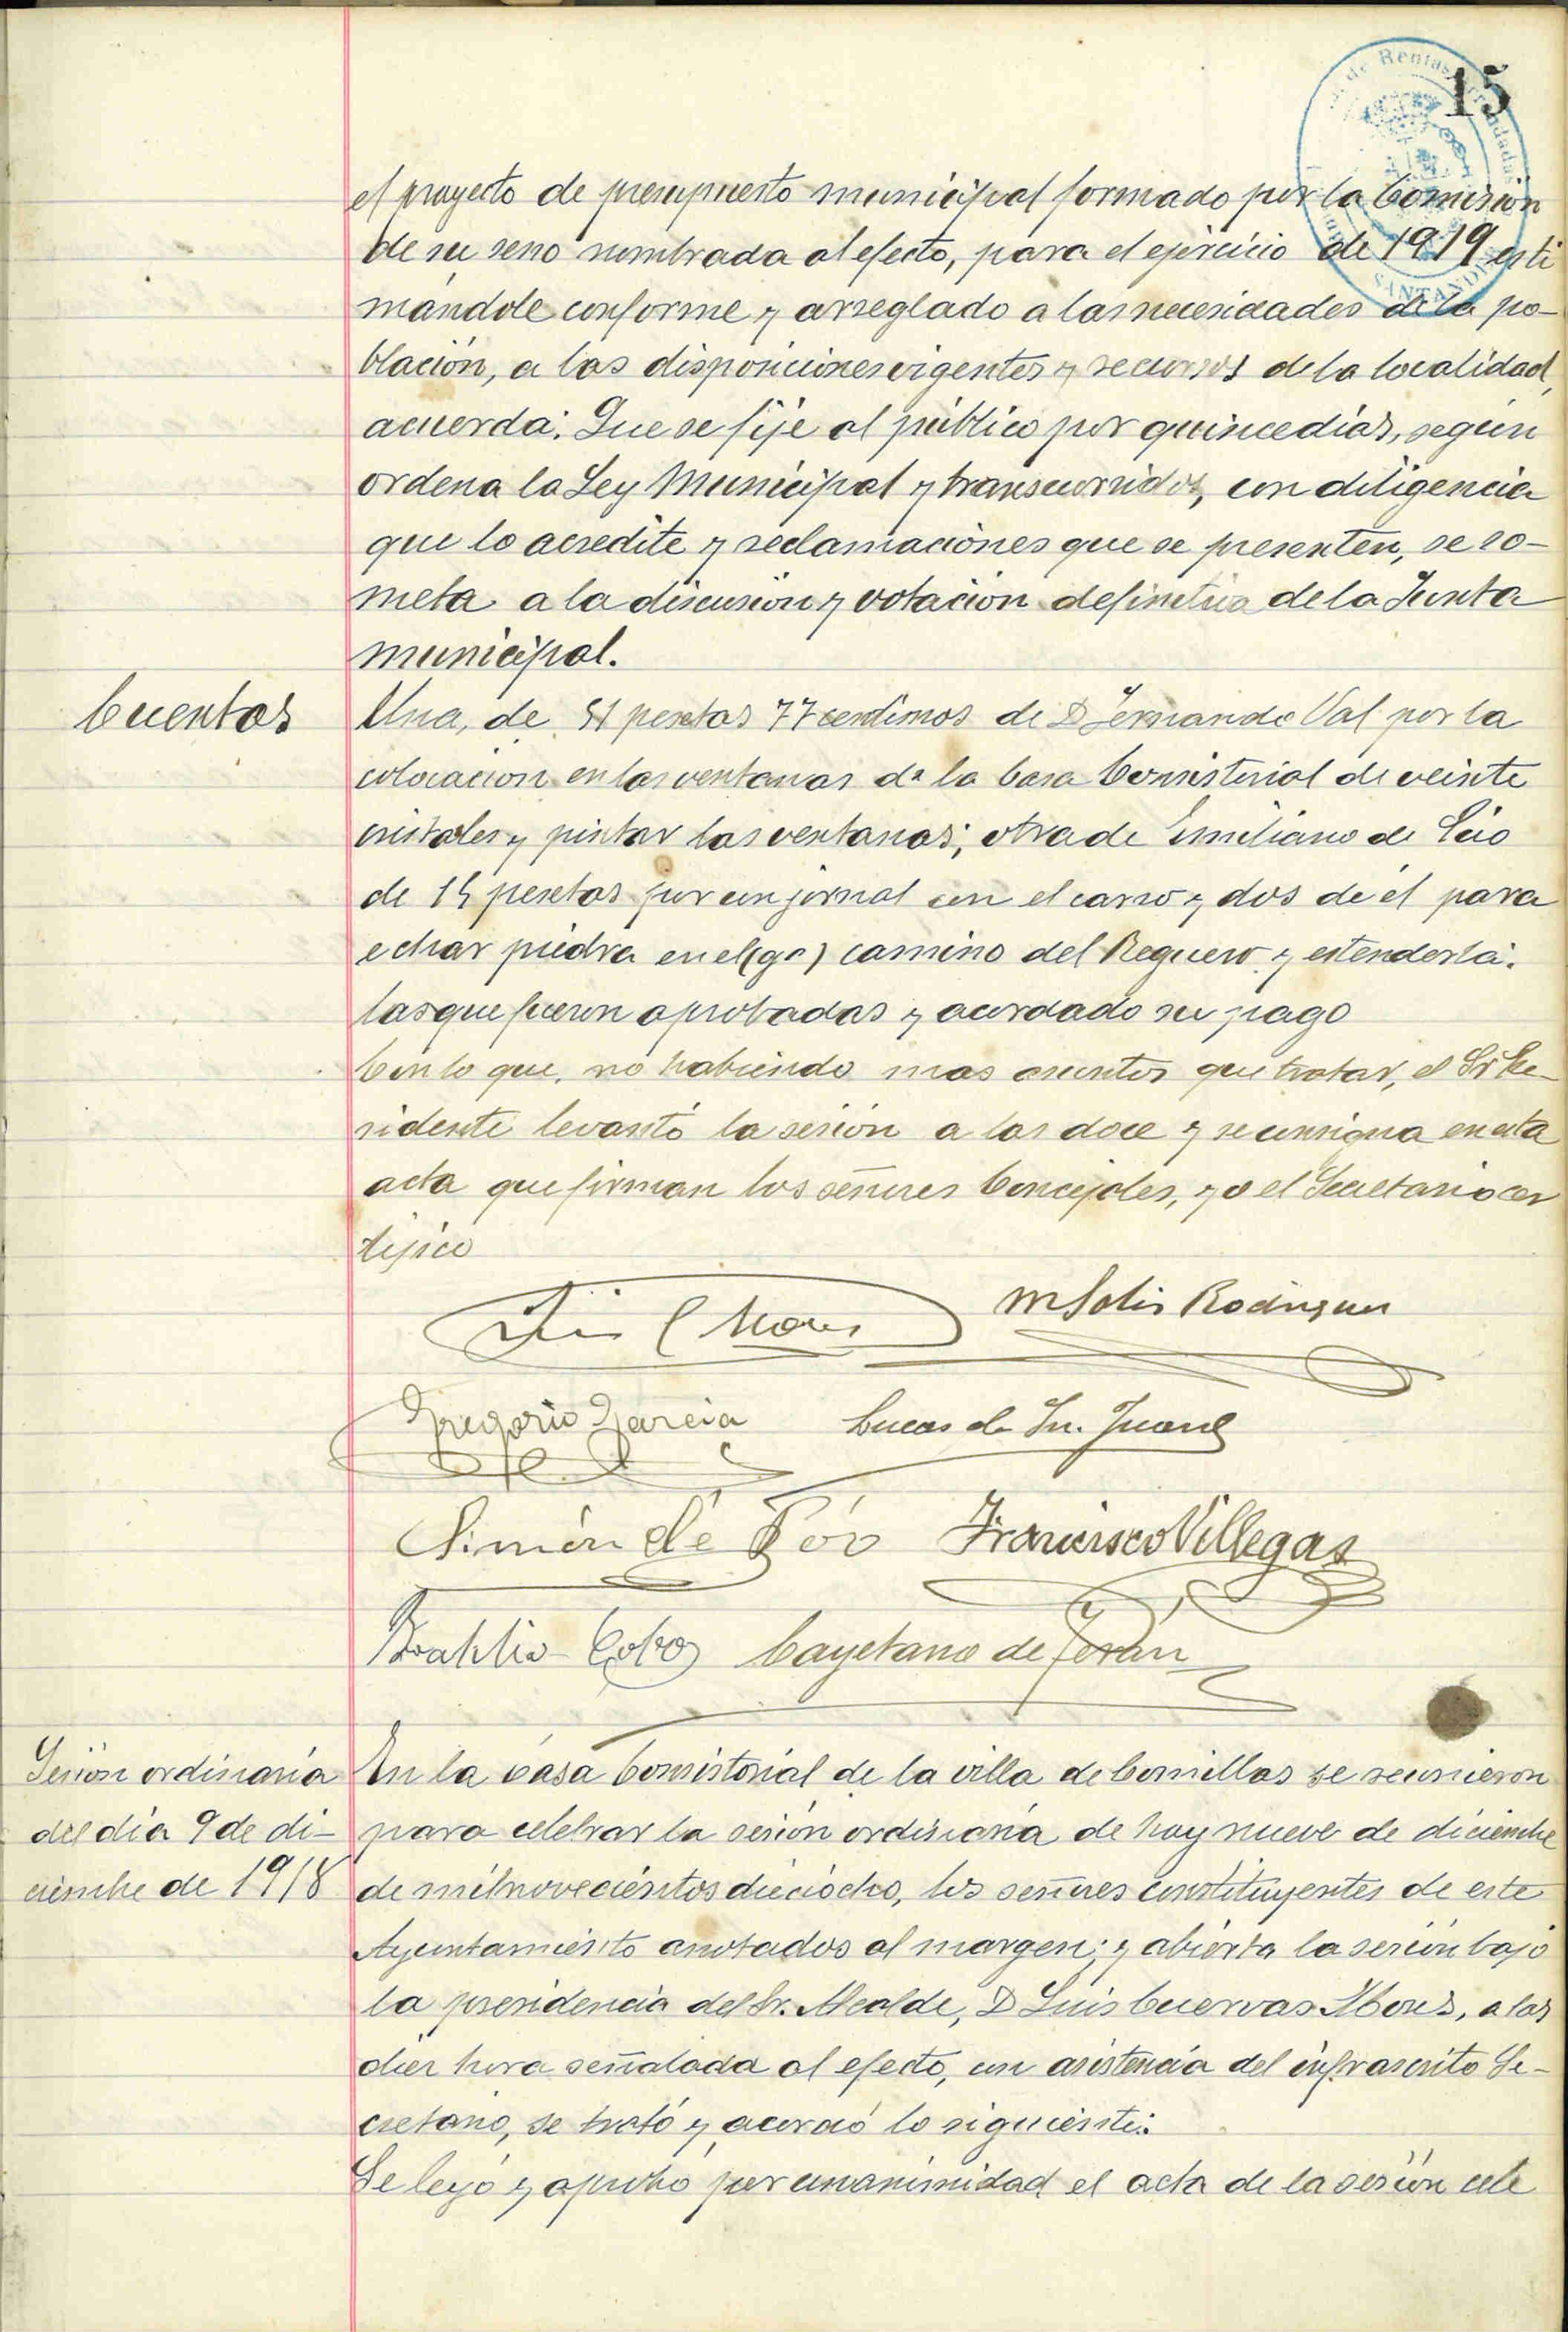 15
de Rentas
SANTANDER
el proyecto de presupuesto municipal formado por la Comisión
de su seno nombrada al efecto, para el ejercicio de 1919 esti
mandole conforme y arreglado a las necesidades de la po-
blación, a las disposiciones vigentes y recursos de la localidad,
acuerda: Que se fije al público por quince dias, según
ordena la Ley Municipal y transcurridos, con diligencia
que lo acredite y reclamaciones que se presenten, se so-
meta a la discusión y votación definitiva de la Junta
municipal.
Cuentas
Una, de 51 pesetas 77 centimos de D Fernando Val por la
colocación en las ventanas de la Casa Consistorial de veinte
cristales y pintar las ventanas; otra de Emiliano de
de 14 pesetas por un jornal con el carro y dos de él para
echar piedra en el (go) camino del Reguero y estenderla.
las que fueron aprobadas y acordado su pago
Con lo que, no habiendo mas asuntos que tratar, el Sr Pre-
sidente levantó la sesión a las doce y se consigna en esta
acta que firman los señores Concejales, yo el Secretario cer
tifico
M Solis Rodriguez
Gregorio Garcia Lucas de Sn. Juan
Simón de Francisco Villegas
Cobo Cayetano de Terán
Sesión ordinaria
del dia 9 de di-
ciembre de 1918
En la Casa Consistorial de la villa de Comillas se reunieron
para celebrar la sesión ordinaria de hoy nueve de diciembre
de mil novecientos dieciocho, los señores constituyentes de este
Ayuntamiento anotados al margen; y abierta la sesión bajo
la presidencia del Sr. Alcalde, D Luis Cuervas Mons, a las
diez hora señalada al efecto, con asistencia del infrascrito Se-
cretario, se trató y acordó lo siguiente:
Se leyó y aprobó por unanimidad el acta de la sesión cele